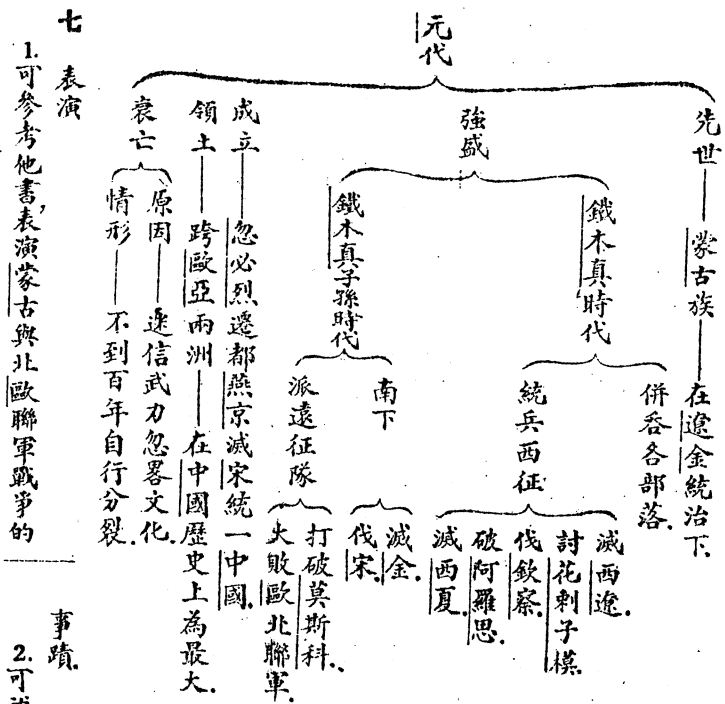 元代
先世——蒙古族——在遼金統治下.
強盛
鐵木真時代
併吞各部落.
統兵西征
滅西遼.
討花剌子模.
伐欽察.
破阿羅思.
滅西夏.
鐵木真子孫時代
南下
滅金.
伐宋.
派遠征隊
打破莫斯科.
大敗歐北聯軍.
成立——忽必烈遷都燕京滅宋統一中國.
領土——跨歐亞兩洲——在中國歷史上為最大.
衰亡
原因——迷信武力忽畧文化.
情形——不到百年自行分裂.
七 表演
1.可參考他書,表演蒙古與北歐聯軍戰爭的
事蹟.
2.可